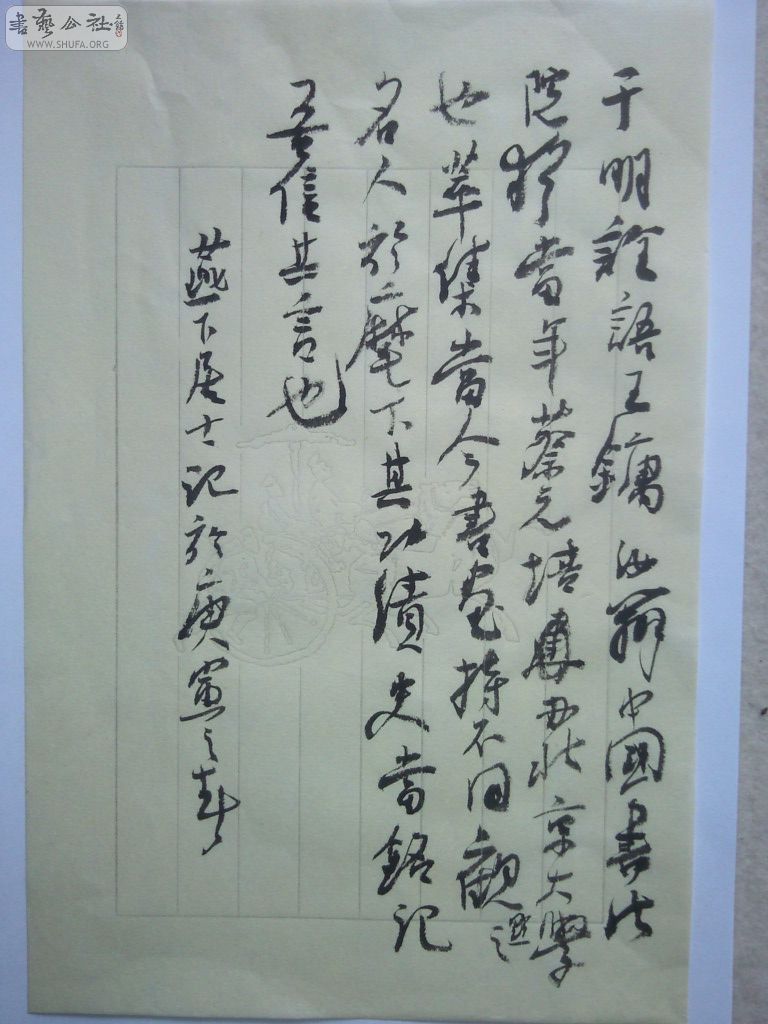 于明詮語王鏞汝辦中國書法
院猶當年蔡元培奠基北京大學
也萃集當今書画持不同觀
選
名人於麾下其功績史當銘記
吾信其言也
燕下居士記於庚寅之春
書藝公社
WWW.SHUFA.ORG